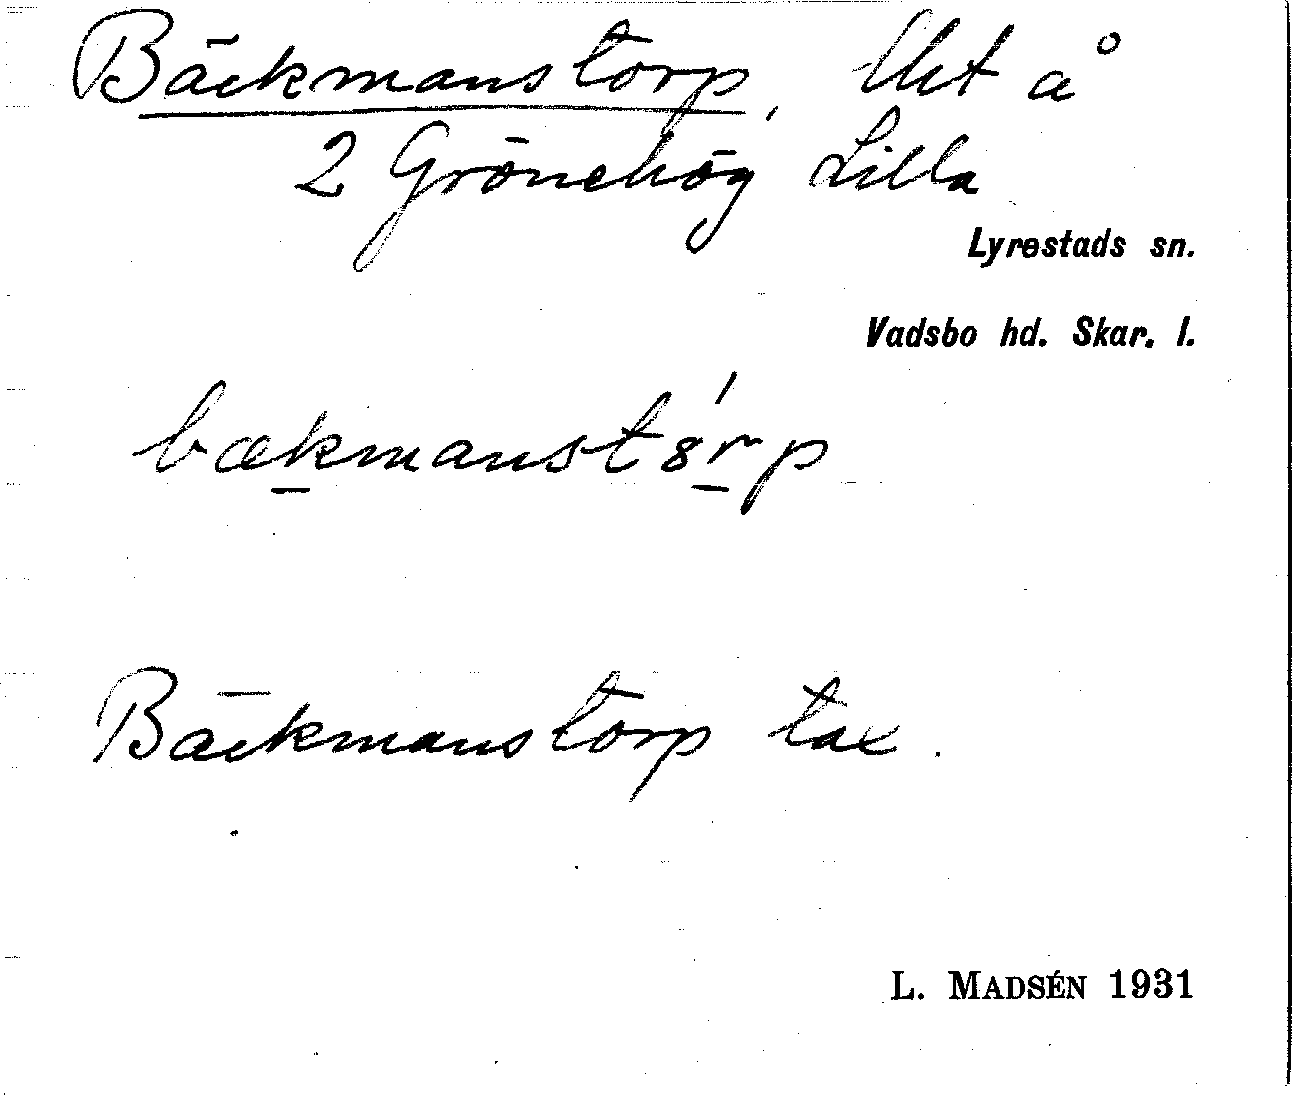 Bäckmanstorp, lht å
2 Grönehög Lilla
Lyrestads sn.
Vadsbo hd. Skar. l.
bækmanst8́rp
Bäckmanstorp tax.
L. MADSÉN 1931